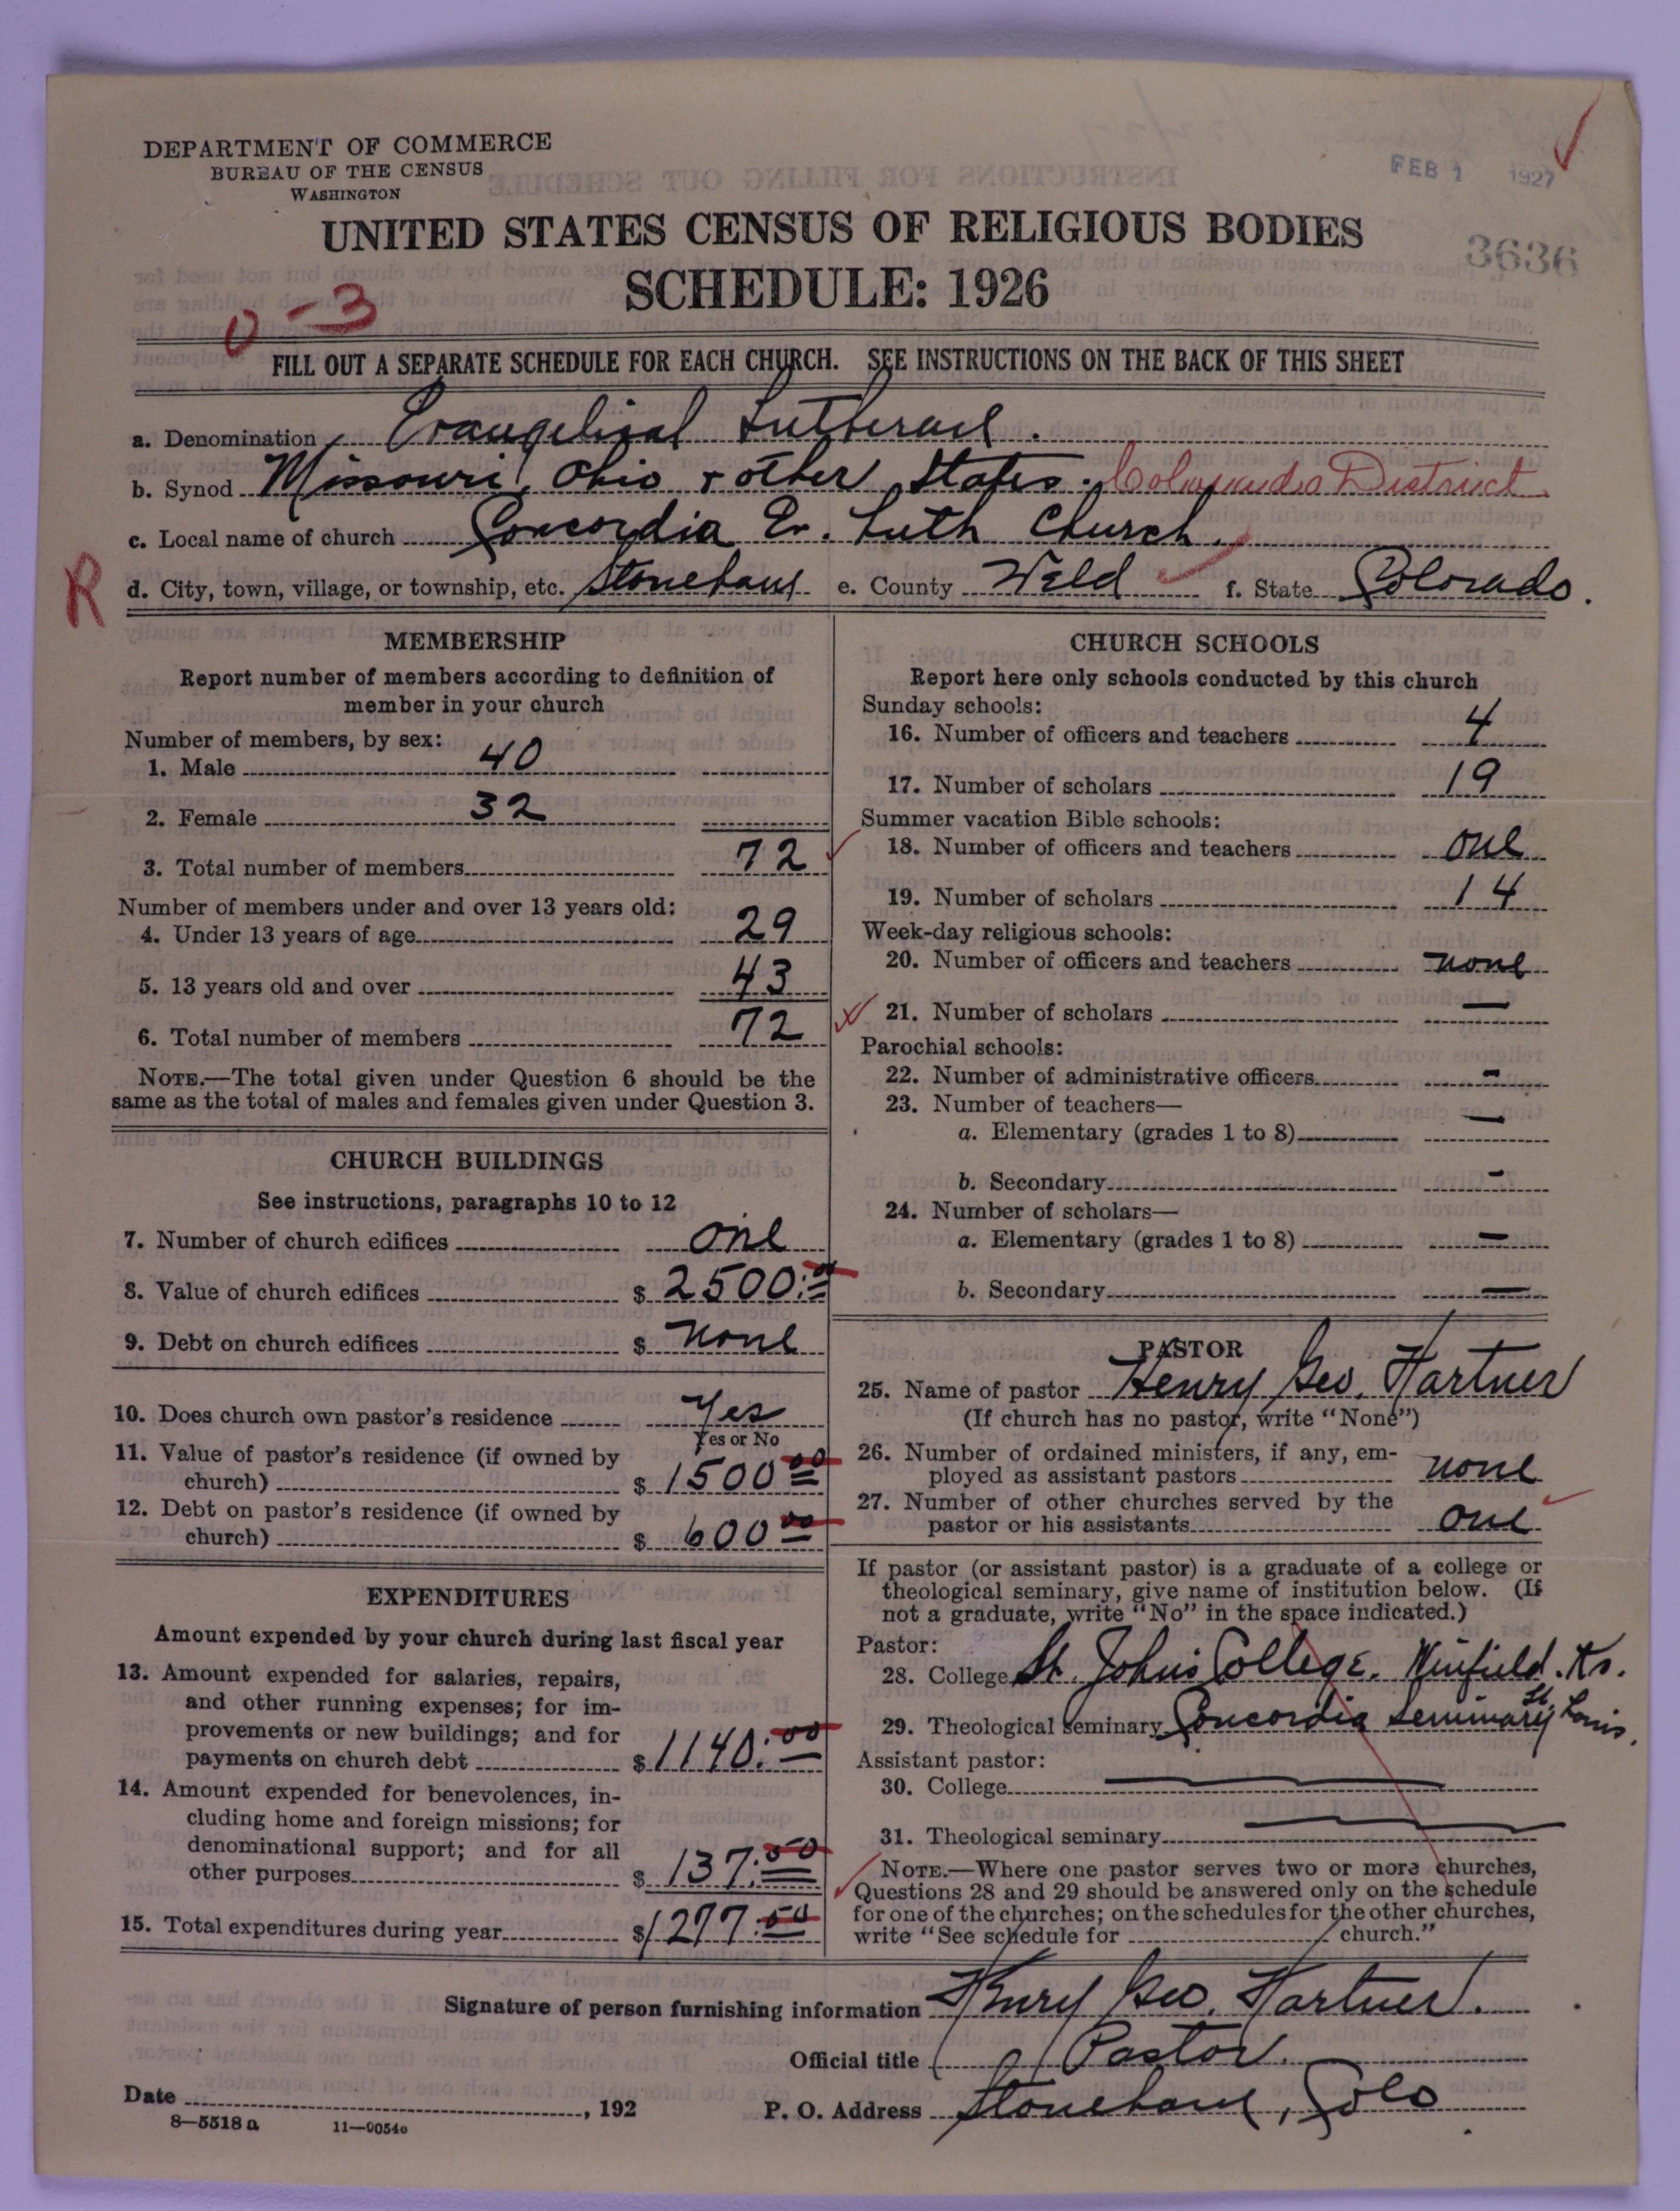 DEPARTMENT OF COMMERCE
BUREAU OF THE CENSUS
WASHINGTON
FEB 1 1927
UNITED STATES CENSUS OF RELIGIOUS BODIES
3636
SCHEDULE: 1926
0-3
FILL OUT A SEPARATE SCHEDULE FOR EACH CHURCH. SEE INSTRUCTIONS ON THE BACK OF THIS SHEET
a. Denomination Evangelical Lutheran.
b. Synod Missouri, Ohio + other States. Colorado District.
c. Local name of church Concordia Ev. Luth Church.
R
d. City, town, village, or township, etc. Stoneham e. County Weld f. State Colorado.
MEMBERSHIP
Report number of members according to definition of
member in your church
Number of members, by sex:
1. Male 40
2. Female 32
3. Total number of members 72
Number of members under and over 13 years old:
4. Under 13 years of age 29
5. 13 years old and over 43
6. Total number of members 72
NOTE.—The total given under Question 6 should be the
same as the total of males and females given under Question 3.
CHURCH BUILDINGS
See instructions, paragraphs 10 to 12
7. Number of church edifices one
8. Value of church edifices $ 2500.00
9. Debt on church edifices $ none
10. Does church own pastor's residence Yes
Yes or No
11. Value of pastor's residence (if owned by
church) $ 1500 00
12. Debt on pastor's residence (if owned by
church) $ 600 00
EXPENDITURES
Amount expended by your church during last fiscal year
13. Amount expended for salaries, repairs,
and other running expenses; for im-
provements or new buildings; and for
payments on church debt $ 1140.00
14. Amount expended for benevolences, in-
cluding home and foreign missions; for
denominational support; and for all
other purposes $ 137.50
15. Total expenditures during year $ 1277.50
CHURCH SCHOOLS
Report here only schools conducted by this church
Sunday schools:
16. Number of officers and teachers 4
17. Number of scholars 19
Summer vacation Bible schools:
18. Number of officers and teachers one
19. Number of scholars 14
Week-day religious schools:
20. Number of officers and teachers none
21. Number of scholars —
Parochial schools:
22. Number of administrative officers -
23. Number of teachers—
a. Elementary (grades 1 to 8) —
b. Secondary -
24. Number of scholars—
a. Elementary (grades 1 to 8) —
b. Secondary —
PASTOR
25. Name of pastor Henry Geo. Hartner
(If church has no pastor, write "None")
26. Number of ordained ministers, if any, em-
ployed as assistant pastors none
27. Number of other churches served by the
pastor or his assistants one
If pastor (or assistant pastor) is a graduate of a college or
theological seminary, give name of institution below. (If
not a graduate, write "No" in the space indicated.)
Pastor:
28. College St. John's College. Winfield. Ks.
29. Theological seminary Concordia Seminary St. Louis.
Assistant pastor:
30. College —
31. Theological seminary —
NOTE.—Where one pastor serves two or more churches,
Questions 28 and 29 should be answered only on the schedule
for one of the churches; on the schedules for the other churches,
write "See schedule for church."
Signature of person furnishing information Henry Geo. Hartner.
Official title Pastor.
Date , 192 P. O. Address Stoneham, Colo
8—5518 a 11—9054e